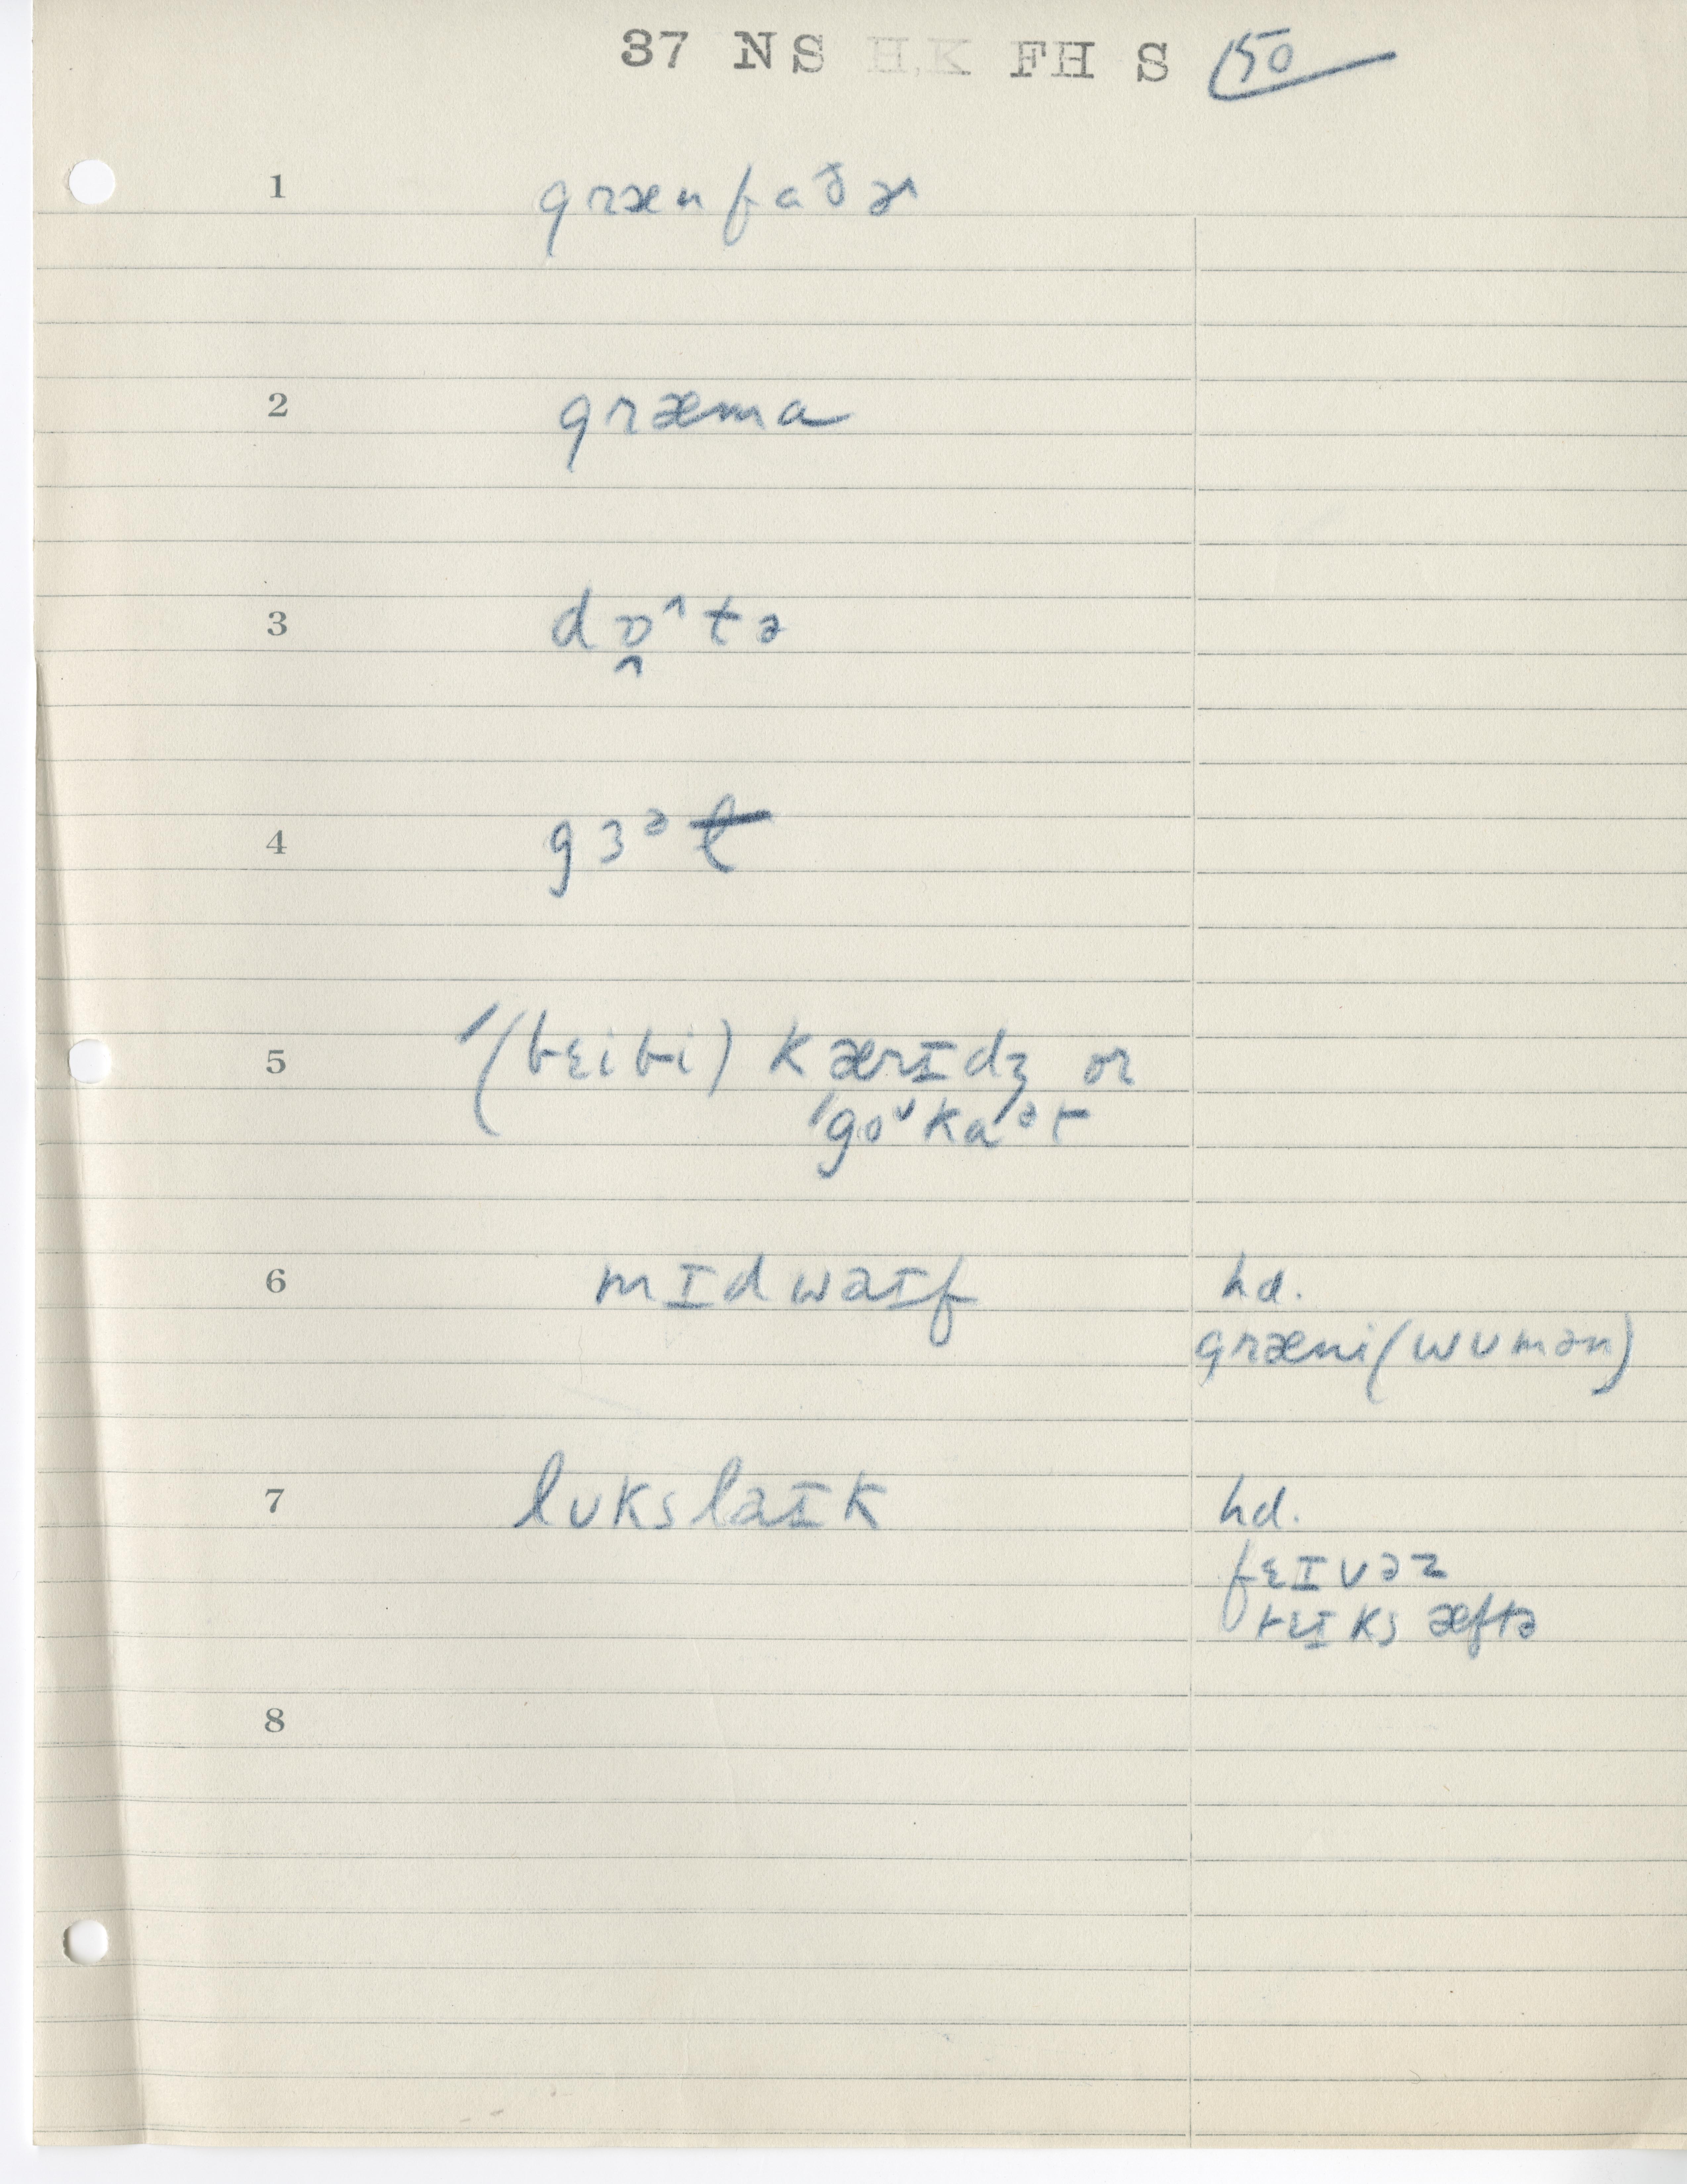 37 NS H.K FH S 150
1 grænfaðɚ
2 græma
3 dɒ̭^tə
4 gɜᵊɫ
5 ˈ(bɛibi) kærɪdʒ or
ˈgoᶷkaᵊt
6 mɪdwaɪf hd.
græni(wumən)
7 lʊkslaɪk hd.
fɛɪvəz
tɛɪks æftə
8